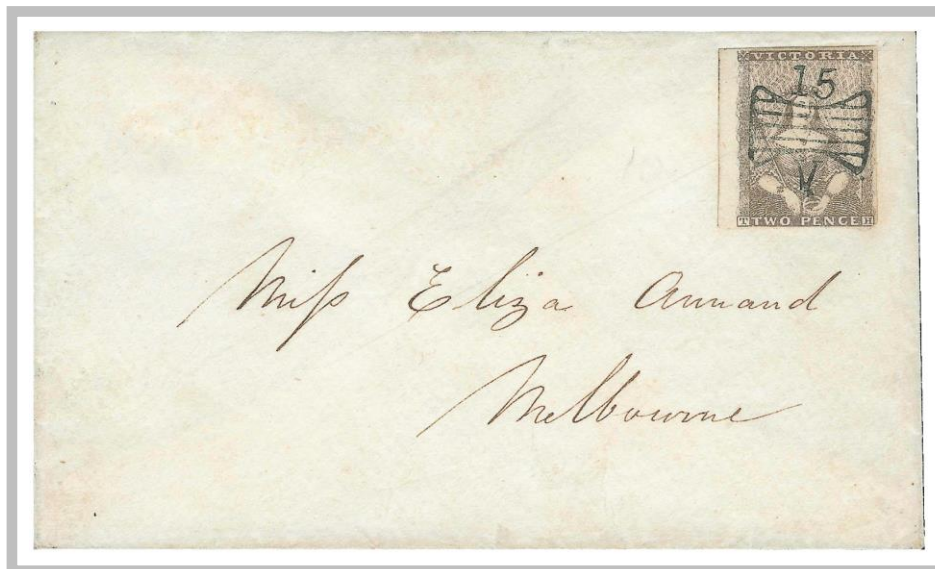 VICTORIA
15
V
TWO PENCE
Miſs Eliza Annand
Melbourne